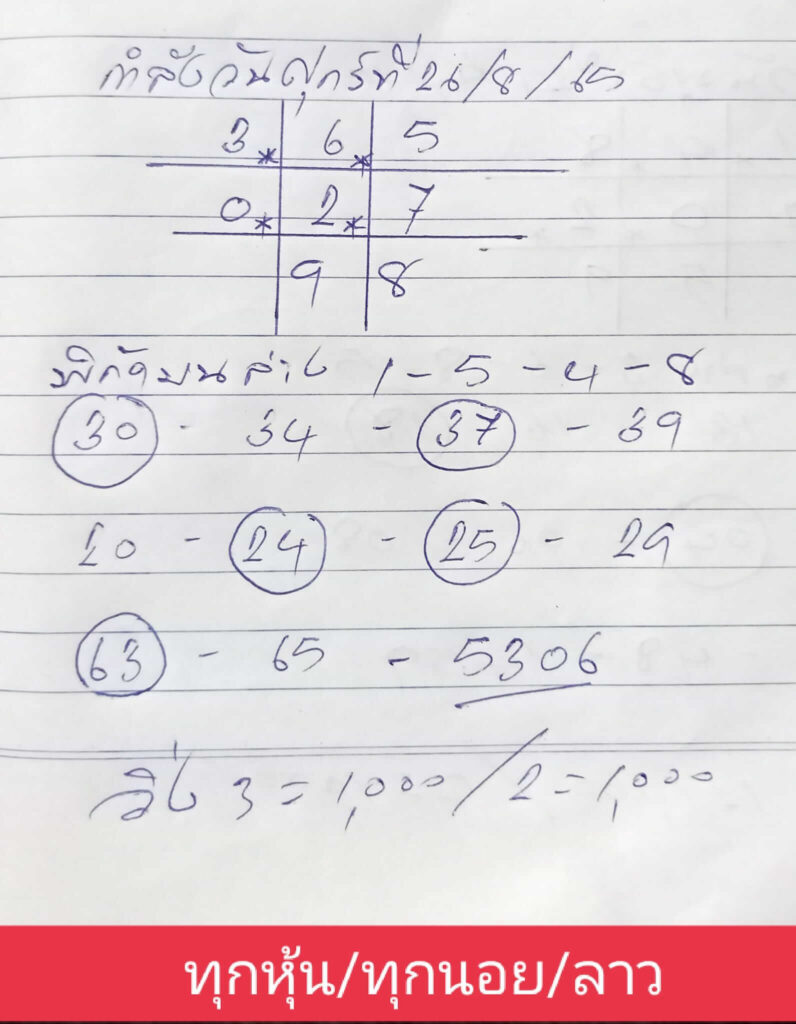 กำลังวันศุกร์ที่ 26/8/65
3* 6* 5
0* 2* 7
9 8
พิกัดบนล่าง 1-5-4-8
30 - 34 - 37 - 39
20 - 24 - 25 - 29
63 - 65 - 5306
วิ่ง 3=1,000/2=1,000
ทุกหุ้น/ทุกนอย/ลาว